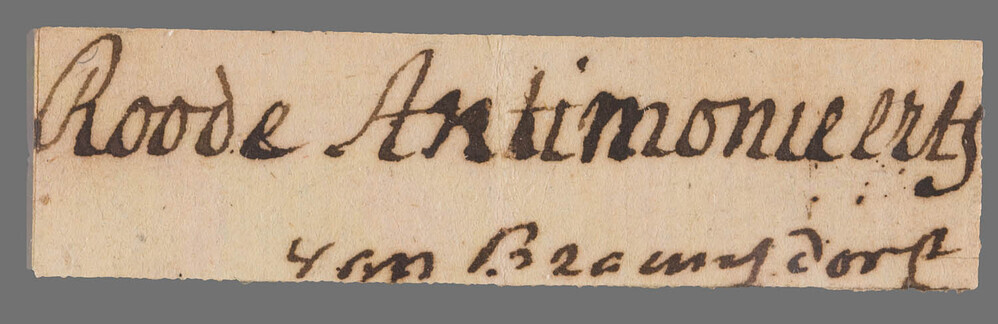 Roode Antimonieerts
van Braunsdorf